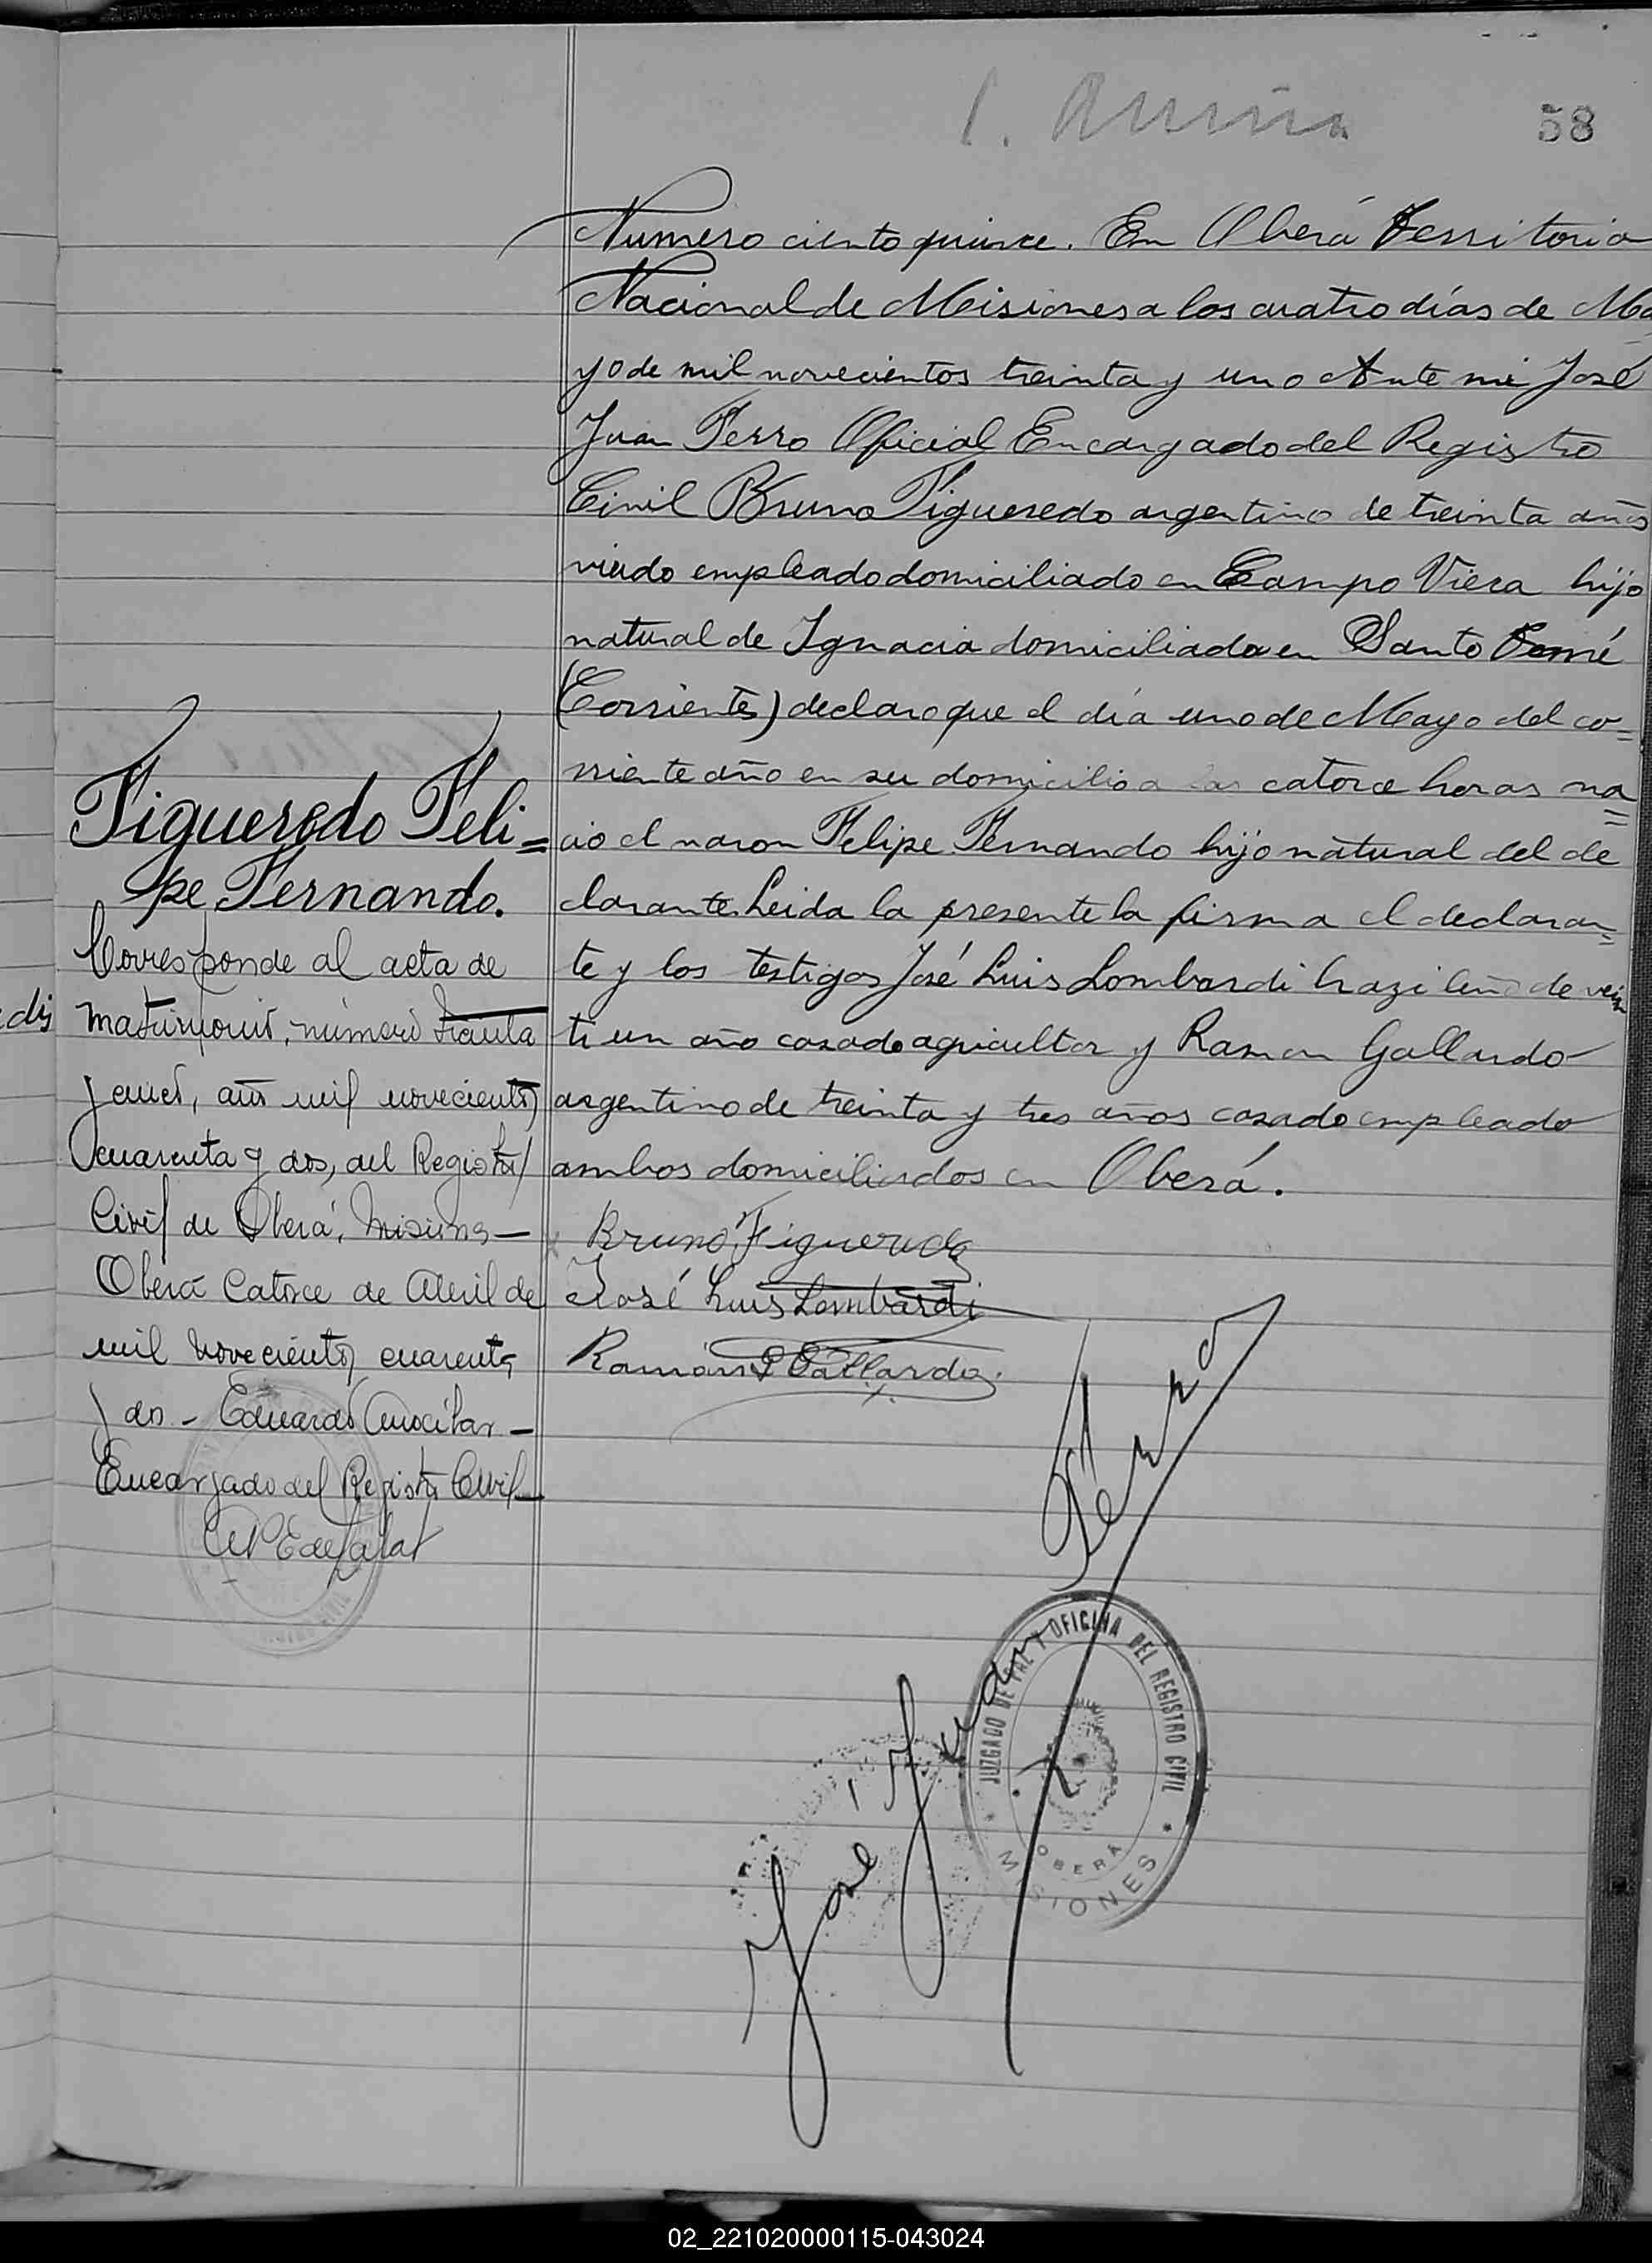 58
Numero ciento quince. En Oberá Territorio
Nacional de Misiones a los cuatro días de Ma
yo de mil novecientos treinta y uno Ante mi José
Juan Ferro Oficial Encargado del Registro
Civil Bruno Figueredo argentino de treinta años
viudo empleado domiciliado en Campo Viera hijo
natural de Ignacia domiciliada en Santo Tomé
(Corrientes) declaro que el día uno de Mayo del co=
rriente año en su domicilio a las catorce horas na=
cio el varon Felipe Fernando hijo natural del de
clarante. Leida la presente la firma el declaran=
te y los testigos José Luis Lombardi brazileño de vein
ti un año casado agricultor y Ramon Gallardo
argentino de treinta y tres años casado empleado
ambos domiciliados en Oberá.
Bruno Figueredo
José Luis Lombardi
Ramón Gallardo
Figueredo Feli=
pe Fernando.
Corresponde al acta de
matrimonio, número treinta
y cinco, año mil novecientos
cuarenta y dos, del Registro
Civil de Oberá, Misiones—
Oberá Catorce de Abril de
mil novecientos cuarenta
y dos - Eduardo
Encargado del Registro Civil—
José Juan Ferro
JUZGADO DE PAZ Y OFICINA DEL REGISTRO CIVIL
OBERÁ
MISIONES
02_221020000115-043024